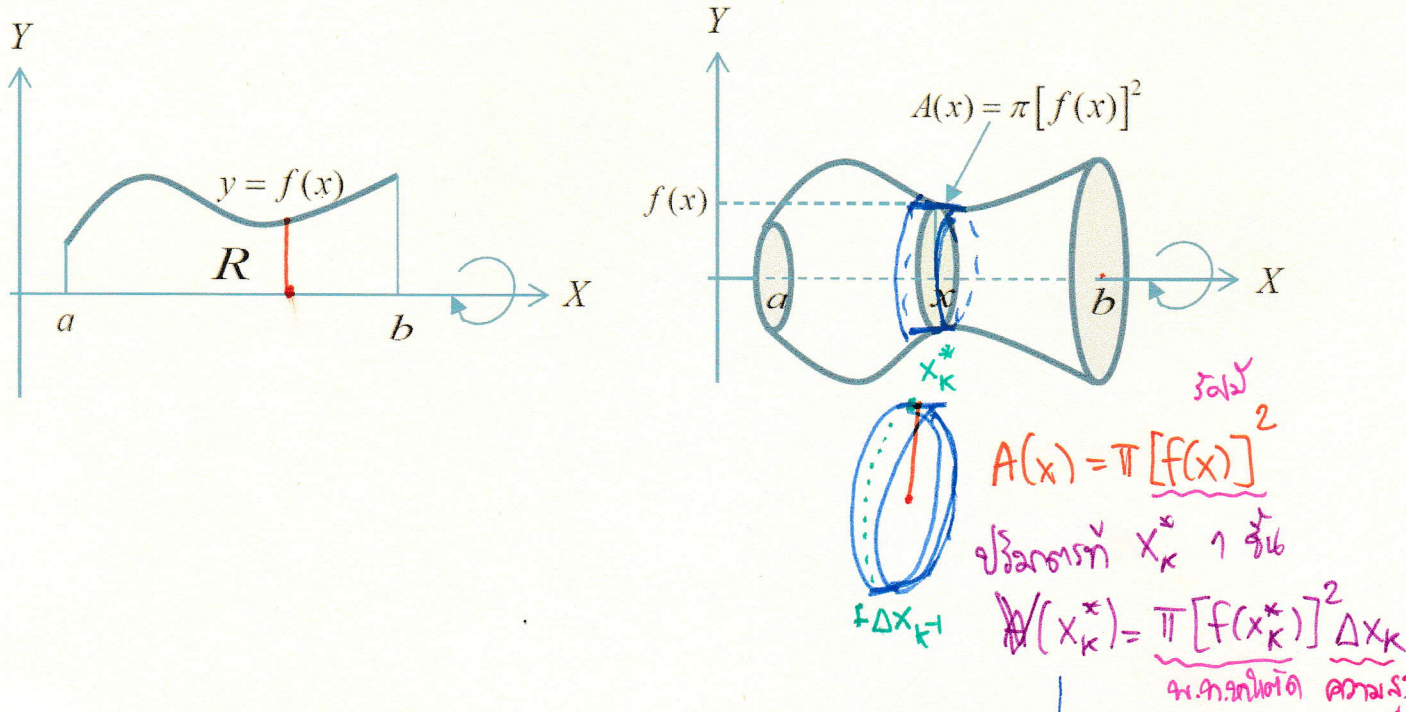 Y
y = f(x)
R
X
a
b
Y
A(x) = π[f(x)]²
f(x)
a
x
b
X
x*ₖ
รัศมี
A(x) = π[f(x)]²
ปริมาตรที่ xₖ* 1 ชิ้น
V(xₖ*) = π[f(xₖ*)]² Δxₖ
พ.ท.หน้าตัด